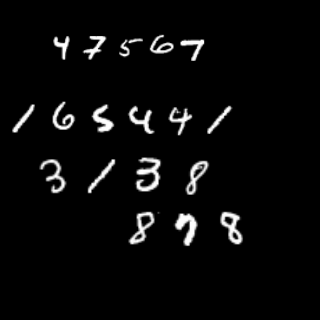 47567
165441
3138
878